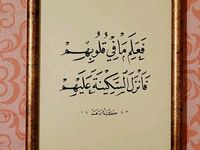 فَعَلِمَ مَا فِي قُلُوبِهِمْ
فَأَنْزَلَ السَّكِينَةَ عَلَيْهِمْ